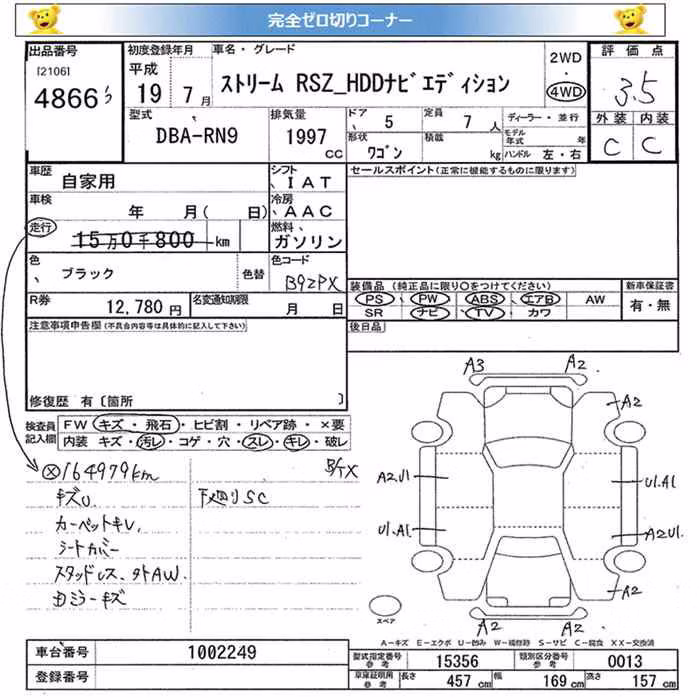 完全ゼロ切りコーナー
出品番号 初度登録年月 車名・グレード 2WD 評価点
[2106] 平成 ・
4866 19年 7月 ストリーム RSZ_HDDナビエディション 4WD 3.5
型式 排気量 ドア 定員 ディーラー・並行 外装 内装
DBA-RN9 1997 CC 5 7人 モデル年式 年 C C
形状 積載 kg ハンドル 左・右
ワゴン
車歴 シフト セールスポイント(正常に機能するものに限ります)
自家用 IAT
車検 冷房
年 月( 日) AAC
走行 燃料
15万0千800 km ガソリン
色 色替 色コード
ブラック B92PX
装備品(純正品に限り○をつけてください) 新車保証書
R券 12,780円 名変通知期限 月 日 PS PW ABS エアB AW 有・無
SR ナビ TV カワ
注意事項申告欄(不具合内容等は具体的に記入して下さい) 後日品
修復歴 有〔箇所 〕
検査員記入欄 FW キズ・飛石・ヒビ割・リペア跡・×要
内装 キズ・汚レ・コゲ・穴・スレ・キレ・破レ
A3 A2
A2
A2.U1 U1.A1
U1.A1 A2U1.
A2
A2 A2
スペア
164979km
キズU. 下廻りSC
カーペットキレ.
シートカバー
スタッドレス、外AW.
ミラーキズ
A-キズ E-エクボ U-凹み W-補修跡 S-サビ C-腐食 XX-交換済
車台番号 1002249
登録番号
型式指定番号 参考 15356 類別区分番号 参考 0013
車庫証明用 参考 長さ 457 cm 幅 169 cm 高さ 157 cm